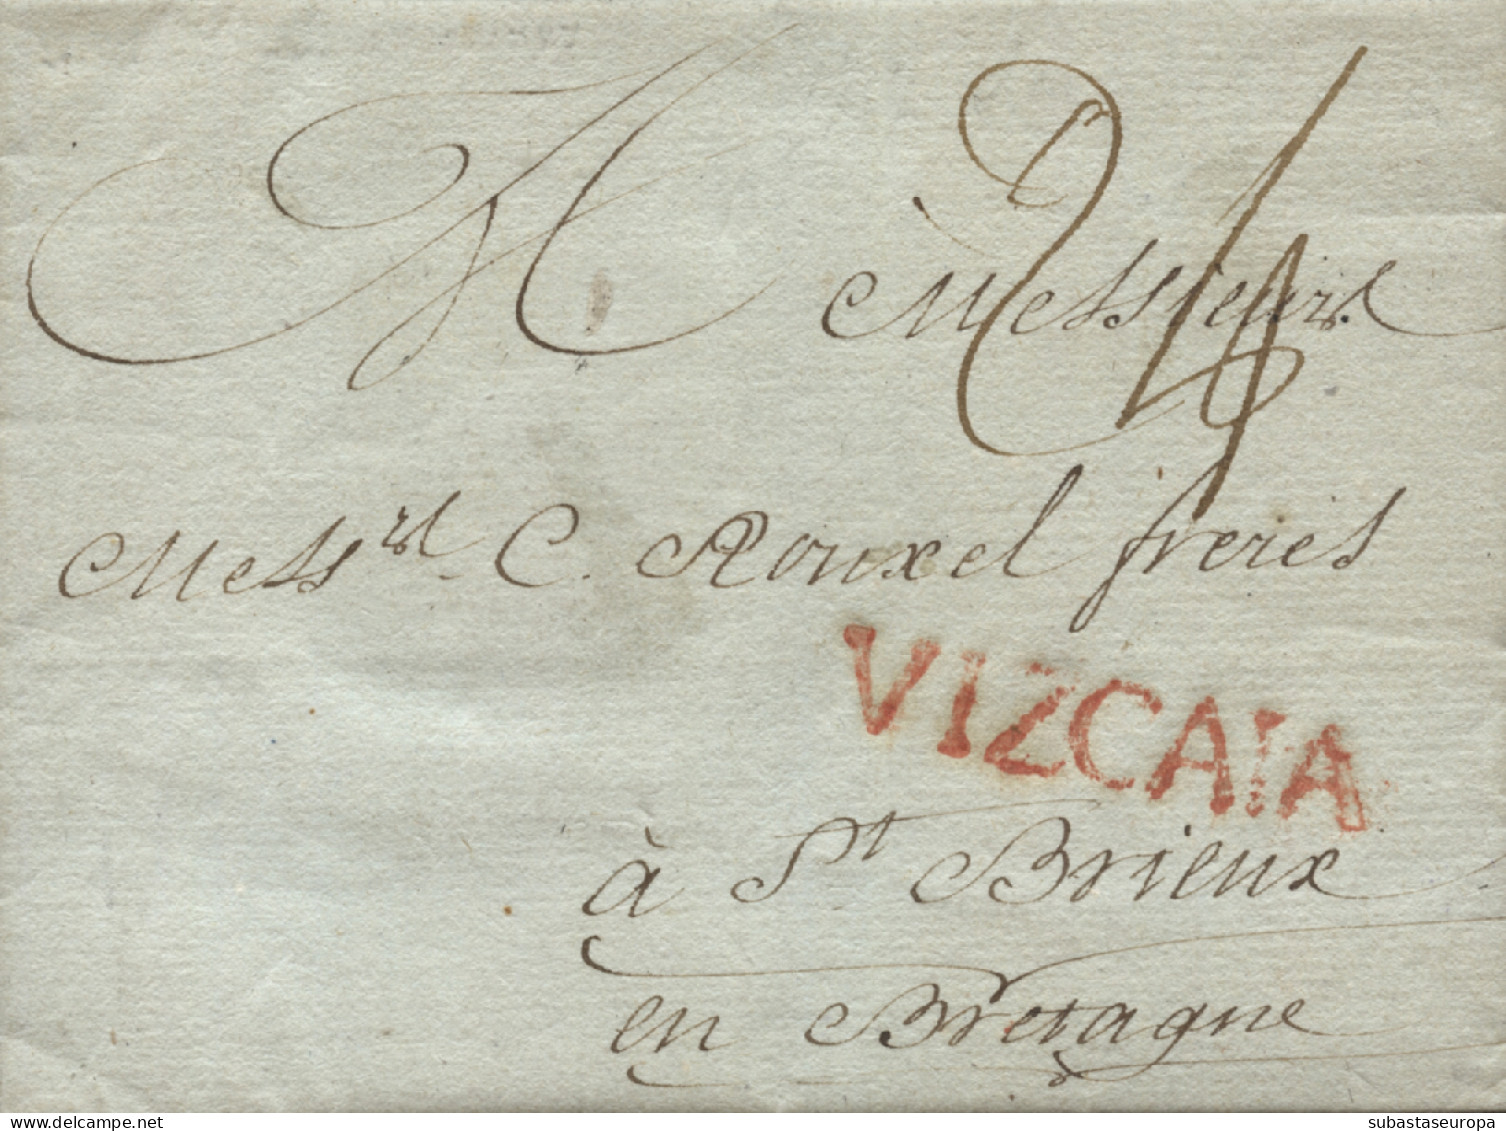 A Messieurs
24
Mess.rs C. Rouxel freres
VIZCAIA
à St Brieux
en Bretagne
delcampe.net
subastaseuropa